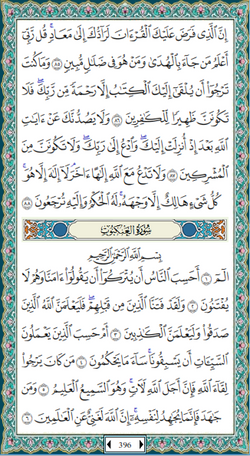 إِنَّ ٱلَّذِى فَرَضَ عَلَيْكَ ٱلْقُرْءَانَ لَرَآدُّكَ إِلَىٰ مَعَادٍ ۚ قُل رَّبِّىٓ
أَعْلَمُ مَن جَآءَ بِٱلْهُدَىٰ وَمَنْ هُوَ فِى ضَلَـٰلٍ مُّبِينٍ ٨٥ وَمَا كُنتَ
تَرْجُوٓا۟ أَن يُلْقَىٰٓ إِلَيْكَ ٱلْكِتَـٰبُ إِلَّا رَحْمَةً مِّن رَّبِّكَ ۖ فَلَا
تَكُونَنَّ ظَهِيرًا لِّلْكَـٰفِرِينَ ٨٦ وَلَا يَصُدُّنَّكَ عَنْ ءَايَـٰتِ
ٱللَّهِ بَعْدَ إِذْ أُنزِلَتْ إِلَيْكَ ۖ وَٱدْعُ إِلَىٰ رَبِّكَ ۖ وَلَا تَكُونَنَّ مِنَ
ٱلْمُشْرِكِينَ ٨٧ وَلَا تَدْعُ مَعَ ٱللَّهِ إِلَـٰهًا ءَاخَرَ ۘ لَآ إِلَـٰهَ إِلَّا هُوَ ۚ
كُلُّ شَىْءٍ هَالِكٌ إِلَّا وَجْهَهُۥ ۚ لَهُ ٱلْحُكْمُ وَإِلَيْهِ تُرْجَعُونَ ٨٨
سُورَةُ العَنكَبُوتِ
بِسْمِ ٱللَّهِ ٱلرَّحْمَـٰنِ ٱلرَّحِيمِ
الٓمٓ ١ أَحَسِبَ ٱلنَّاسُ أَن يُتْرَكُوٓا۟ أَن يَقُولُوٓا۟ ءَامَنَّا وَهُمْ لَا
يُفْتَنُونَ ٢ وَلَقَدْ فَتَنَّا ٱلَّذِينَ مِن قَبْلِهِمْ ۖ فَلَيَعْلَمَنَّ ٱللَّهُ ٱلَّذِينَ
صَدَقُوا۟ وَلَيَعْلَمَنَّ ٱلْكَـٰذِبِينَ ٣ أَمْ حَسِبَ ٱلَّذِينَ يَعْمَلُونَ
ٱلسَّيِّـَٔاتِ أَن يَسْبِقُونَا ۚ سَآءَ مَا يَحْكُمُونَ ٤ مَن كَانَ يَرْجُوا۟
لِقَآءَ ٱللَّهِ فَإِنَّ أَجَلَ ٱللَّهِ لَـَٔاتٍ ۚ وَهُوَ ٱلسَّمِيعُ ٱلْعَلِيمُ ٥ وَمَن
جَـٰهَدَ فَإِنَّمَا يُجَـٰهِدُ لِنَفْسِهِۦٓ ۚ إِنَّ ٱللَّهَ لَغَنِىٌّ عَنِ ٱلْعَـٰلَمِينَ ٦
396